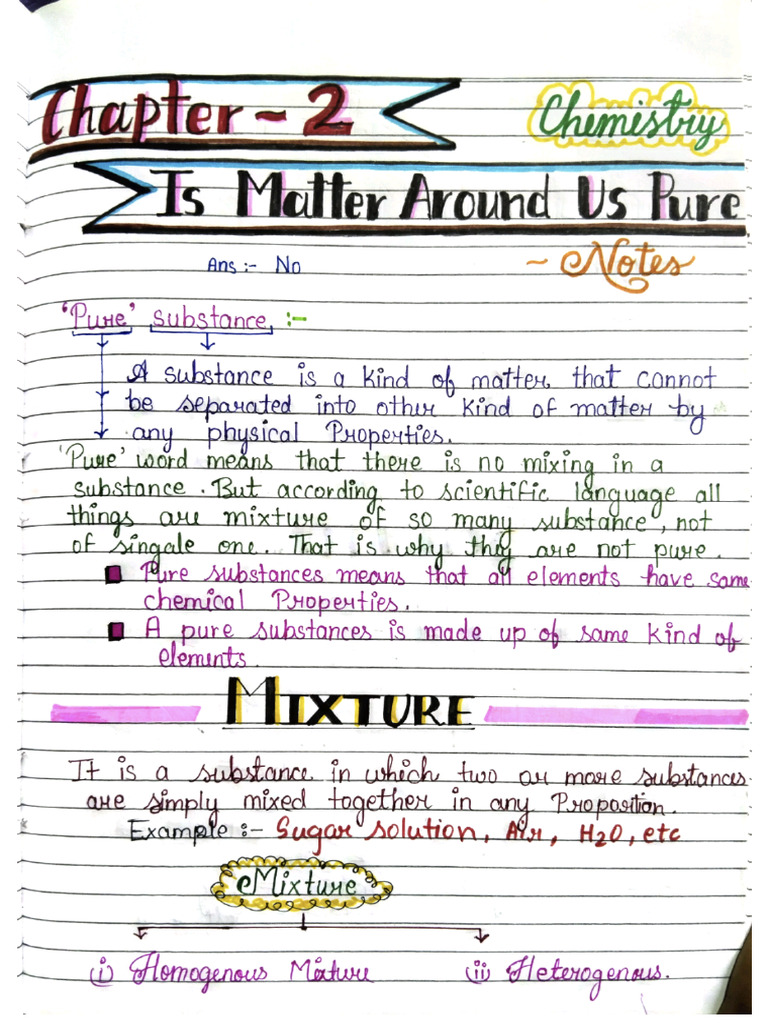 Chapter - 2
Chemistry
Is Matter Around Us Pure
Ans :- No
~ Notes
'Pure' substance :-
A substance is a kind of matter that cannot
be separated into other kind of matter by
any physical Properties.
'Pure' word means that there is no mixing in a
substance. But according to scientific language all
things are mixture of so many substance, not
of singale one. That is why they are not pure.
Pure substances means that all elements have same
chemical Properties.
A pure substances is made up of same kind of
elements.
MIXTURE
It is a substance in which two or more substances
are simply mixed together in any Proportion.
Example :- Sugar solution, Air, H2O, etc
Mixture
(i) Homogenous Mixture (ii) Heterogenous.